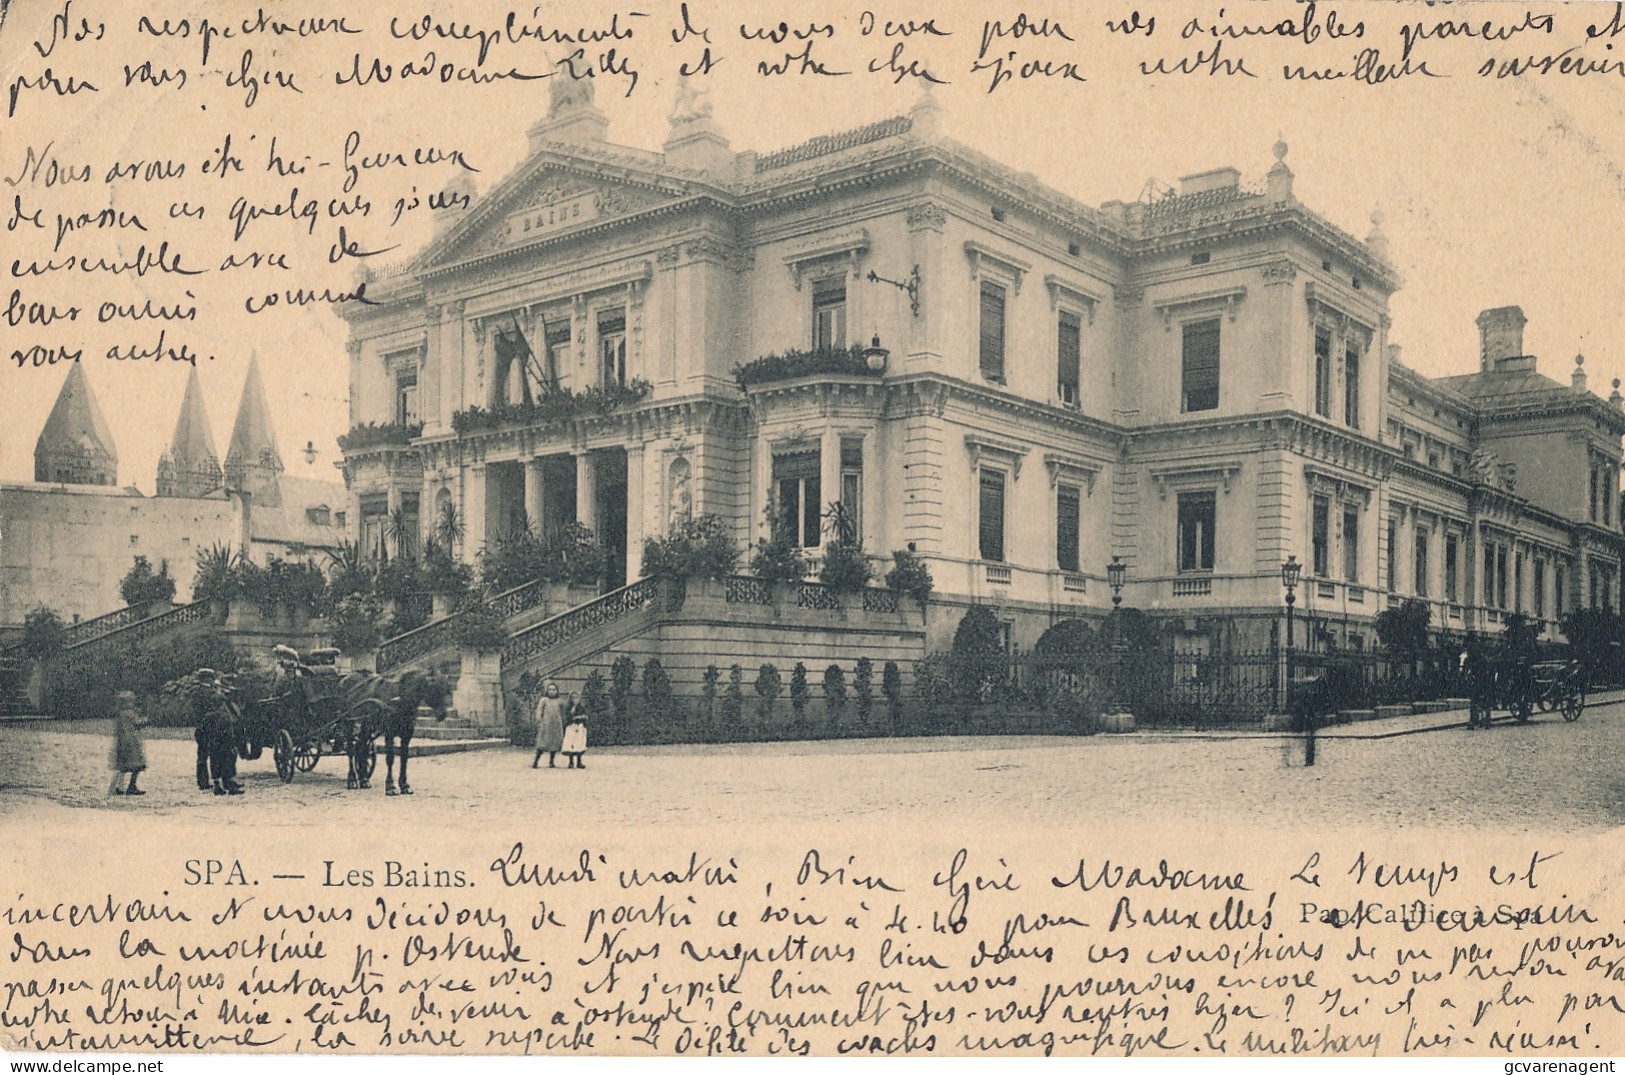 Nos respectueux compliments de nous deux pour vos aimables parents et
pour vous chère Madame Lilly et votre cher époux notre meilleur souvenir
Nous avons été très-heureux
de passer ces quelques jours
ensemble avec de
bons amis comme
vous autres.
BAINS
SPA. — Les Bains. Lundi matin, Bien chère Madame, Le temps est
incertain et nous décidons de partir ce soir à 4.40 pour Bruxelles et Demain
Pap. Califice à Spa
dans la matinée p. Ostende. Nous regrettons bien dans ces conditions de ne pas pouvoir
passer quelques instants avec vous et j'espère bien que nous pourrons encore nous revoir avant
votre retour à Nice. Tâchez de venir à Ostende? Comment êtes-vous rentrés hier? Ici il a plu par
intermittence, la soirée superbe. Le Défilé des coachs magnifique. Le military très-réussi.
https://www.delcampe.net
gcvarenagent